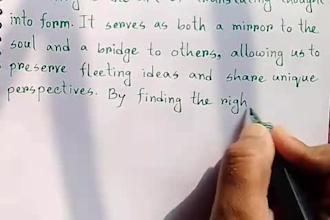 into form. It serves as both a mirror to the
soul and a bridge to others, allowing us to
preserve fleeting ideas and share unique
perspectives. By finding the righ